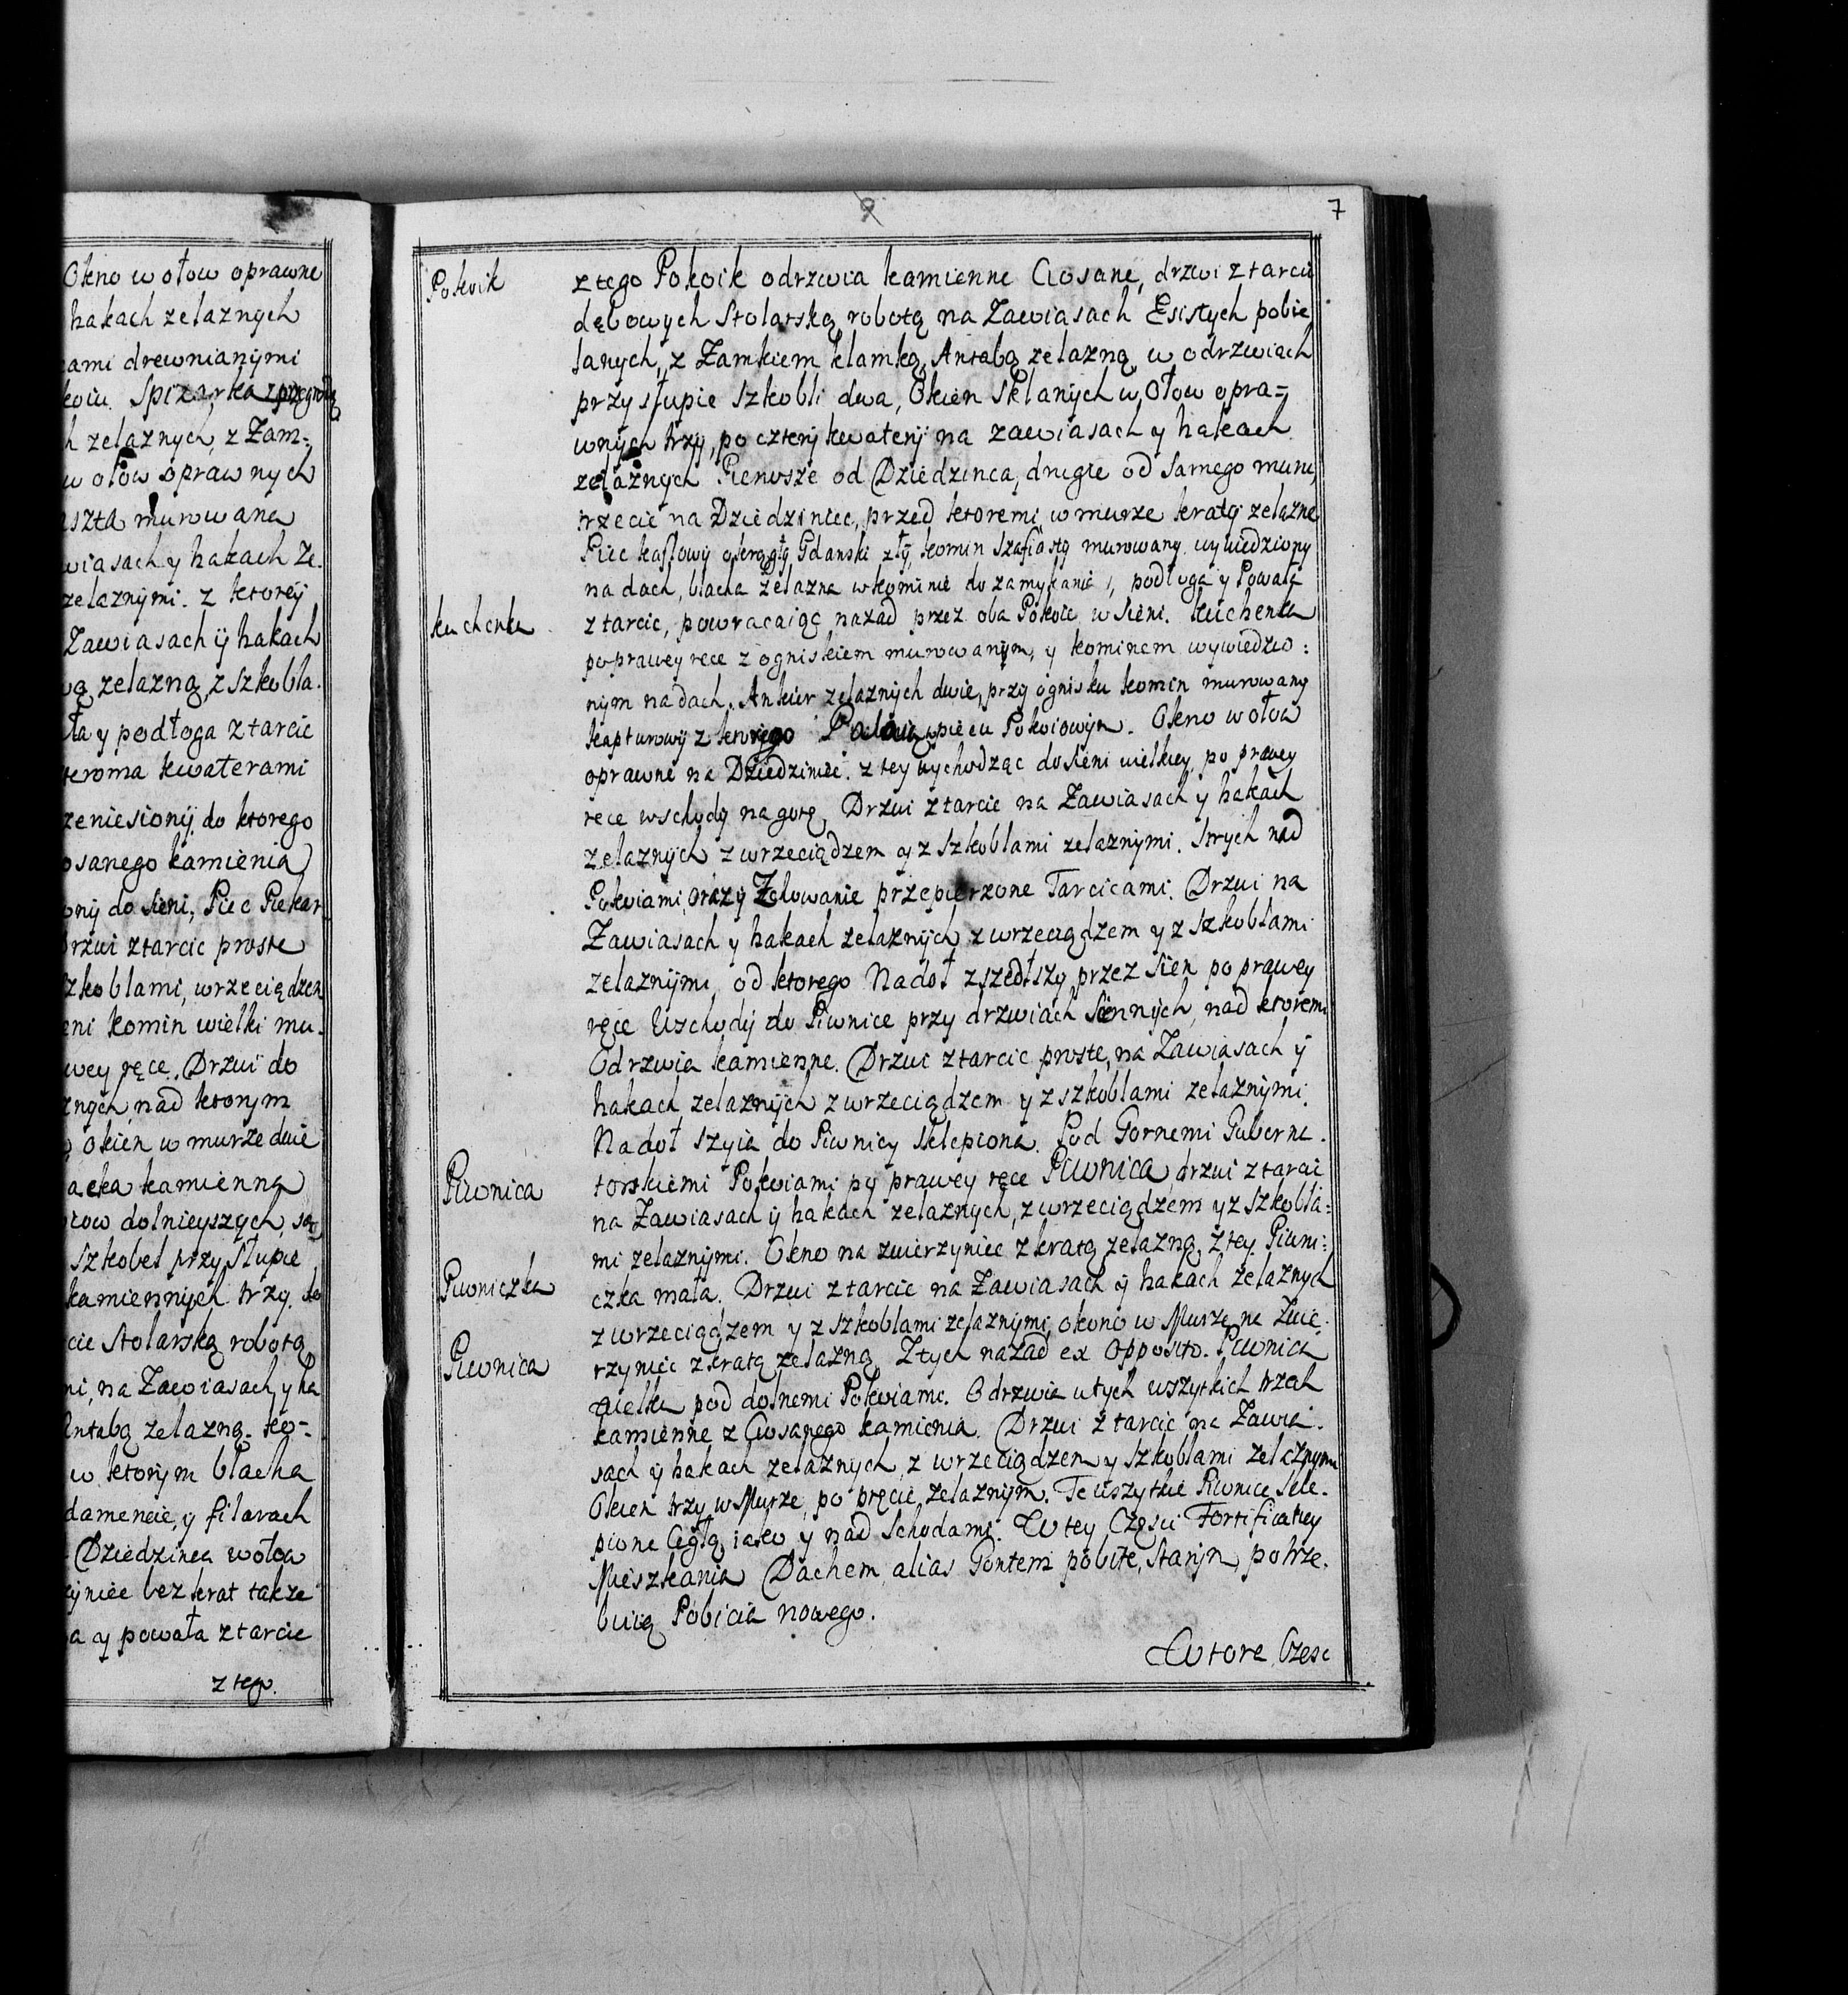 Okno w ołow oprawne
hakach zelaznych
kami drewnianymi
koiu. Spizarka z przegrodą
h zelaznych, z Zam-
w ołow oprawnych
aszta murowana
wiasach y hakach Ze.
zelaznymi. z ktorey
Zawiasach ÿ hakach
wą zelazną, z szkobla.
ła y podłoga z tarcic
teroma kwaterami
zeniesionÿ, do ktorego
osanego kamienia
onÿ do Sieni, Piec Piekar
Drzwi z tarcic proste
szkoblami, wrzeciądzem
eni komin wielki mu.
wey ręce. Drzwi do
znych, nad ktorym
okien w murze dwie
acka kamienna
row dolnieyszych, są
szkobel przy Słupie
kamiennych trzy.
cie Stolarską robotą
mi, na Zawiasach, y ha
Antabą zelazną. ko-
w ktorym blacha
damencie, y filarach
Dziedzinca w ołow
yniec bez krat takze
a y powała z tarcic
z tego.
9
7
Pokoik
z tego Pokoik odrzwia kamienne Ciosane, drzwi z tarcic
dębowych Stolarską robotą na Zawiasach Esistych pobie
lanych, z Zamkiem klamką, Antabą zelazną, w odrzwiach
przy słupie szkobli dwa, Okien sklanych w, Ołow opra-
wnych trzy, po czterÿ kwaterÿ na zawiasach y hakach
zelaznych Pierwsze od Dziedzinca, drugie od Samego muru,
trzecie na Dziedziniec, przed ktoremi, w murze kraty zelazne
Piec kaflowÿ okrągłÿ Gdanski złÿ, komin szafiasty murowany wywiedziony
na dach, blacha zelazna w kominie do zamykania, podłoga y Powała
kuchenka
z tarcic, powracaiąc nazad przez oba Pokoie w Sieni. kuchenka
po prawey rece z ogniskiem murowanym, y kominem wywiedzio:
nym na dach. Ankier zelaznych dwie, przy ognisku komin murowany
kapturowÿ z ktorego Palą w piecu Pokoiowÿm. Okno w ołow
oprawne na Dziedziniec. z tey wychodząc do Sieni wielkiey, po prawey
rece wschody na gorę, Drzwi z tarcic na Zawiasach y hakach
zelaznych z wrzeciądzem y z szkoblami zelaznymi. Strych nad
Pokoiami, oraz y Zolowanie przepierzone Tarcicami. Drzwi na
Zawiasach y hakach zelaznych z wrzeciądzem y z szkoblami
zelaznÿmi, od ktorego Na doł zszedłszy przez Sien po prawey
ręce Wschodÿ do Piwnice przy drzwiach Siennych, nad ktoremi
Odrzwia kamienne. Drzwi z tarcic proste, na Zawiasach ÿ
hakach, zelaznych z wrzeciądzem y z szkoblami zelaznÿmi.
Na doł szyia do Piwnicy sklepiona. Pod Gornemi Guberna.
Piwnica
torskiemi Pokoiami pÿ prawey ręce Piwnica, drzwi z tarcic
na Zawiasach ÿ hakach zelaznych, z wrzeciądzem y z szkobla:
mi zelaznymi. Okno na zwierzyniec z kratą zelazną. z tey Piwni:
Piwniczka
czka mała. Drzwi z tarcic na Zawiasach ÿ hakach zelaznych
z wrzeciądzem y z szkoblami zelaznymi, okono w Murze na Zwie.
Piwnica
rzyniec z kratą zelazną. Z tych nazad ex Opposito. Piwnica
wielka pod dolnemi Pokoiami. Odrzwia u tych wszytkich trzech
kamienne z Ciosanego kamienia. Drzwi z tarcic na Zawia.
sach ÿ hakach zelaznych, z wrzeciądzem y szkoblami zelaznymi
Okien trzy w Murze, po pręcie zelaznym. Te wszytkie Piwnice skle.
pione Cegłą, iako y nad Schodami. W tey Częsci Fortificatiey
Mieszkania Dachem, alias Gontem pobite, starym, potrze.
buią Pobicia nowego.
Wtora Częsc